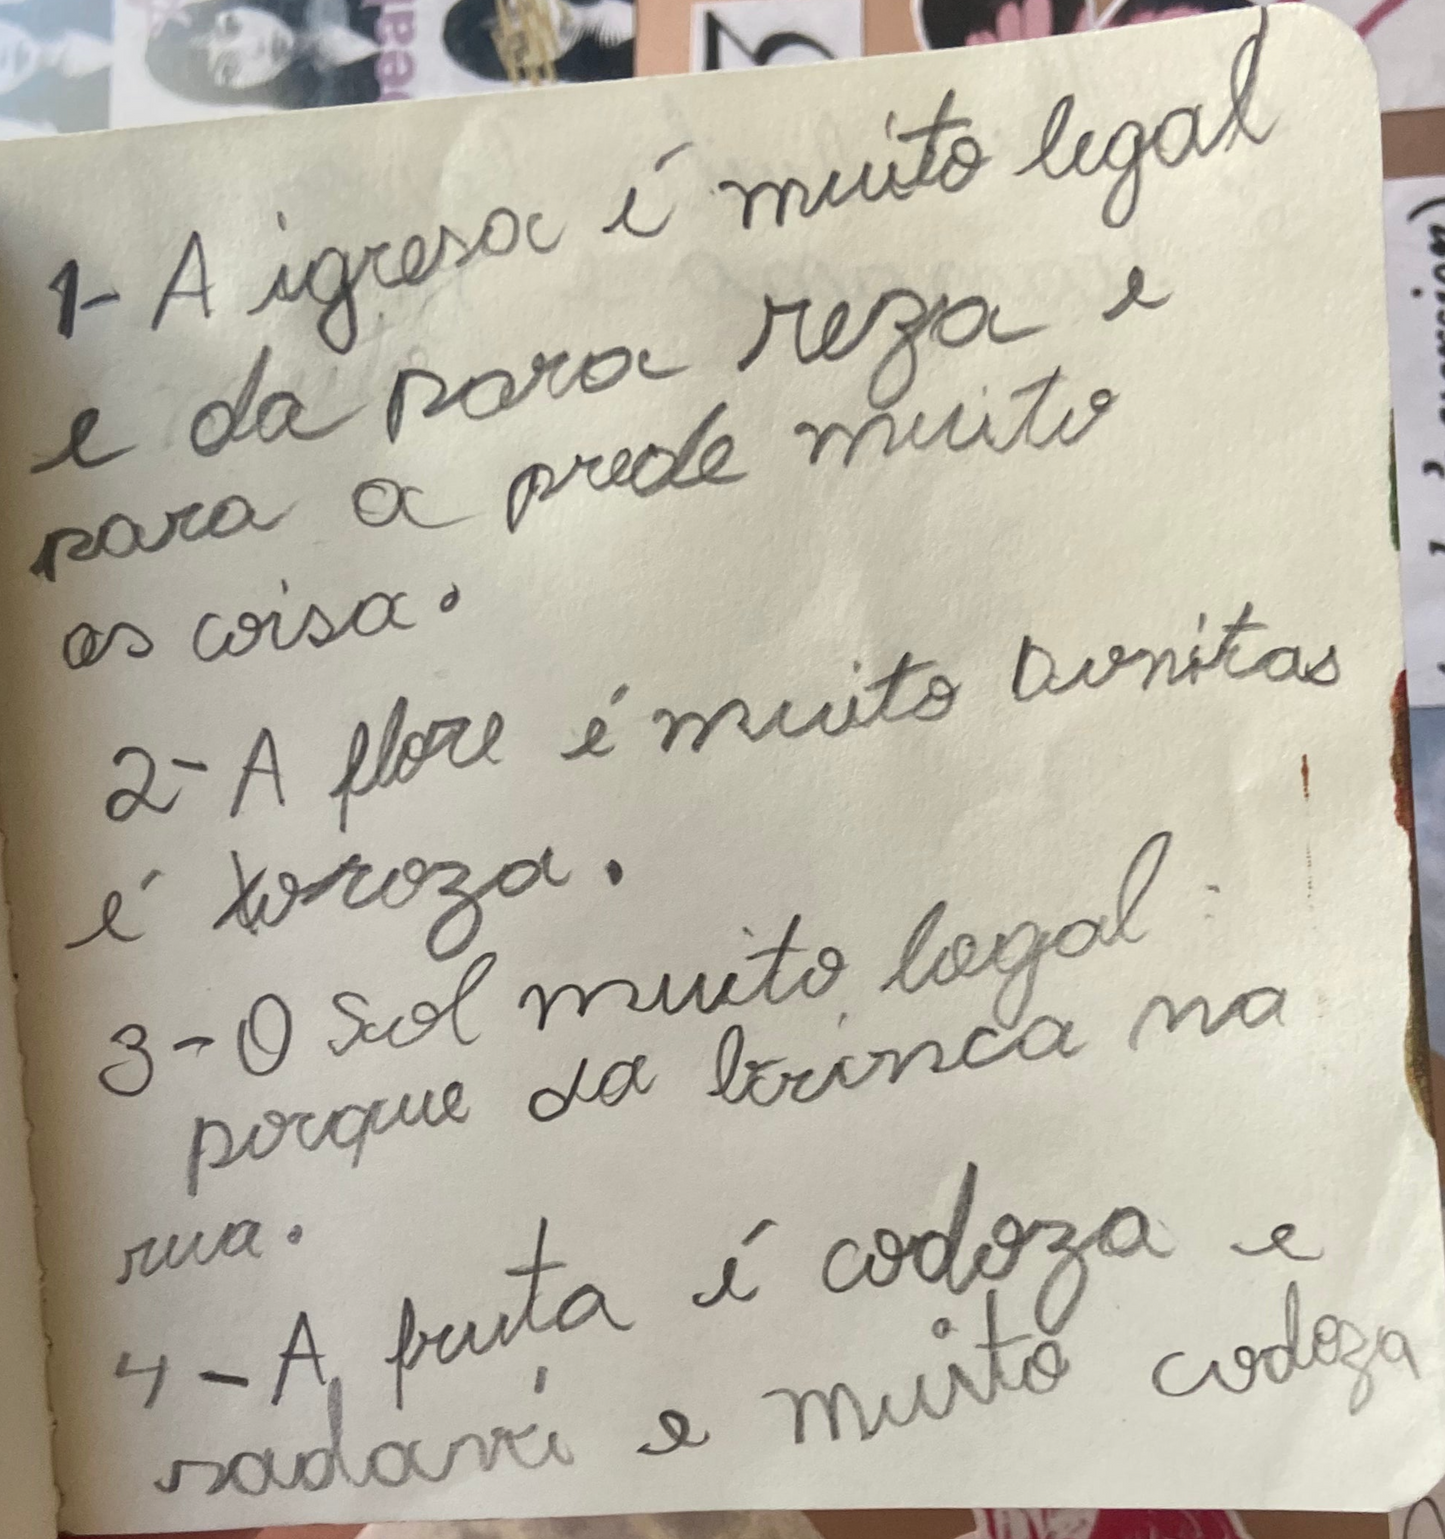 1- A igresa é muito legal
e da para reza e
para a prede muito
as coisa.
2- A flore é muito bonitas
é xoroza.
3- O Sol muito legal
porque da brinca na
rua.
4- A fruta é codoza e
sadavéi e muito codoza